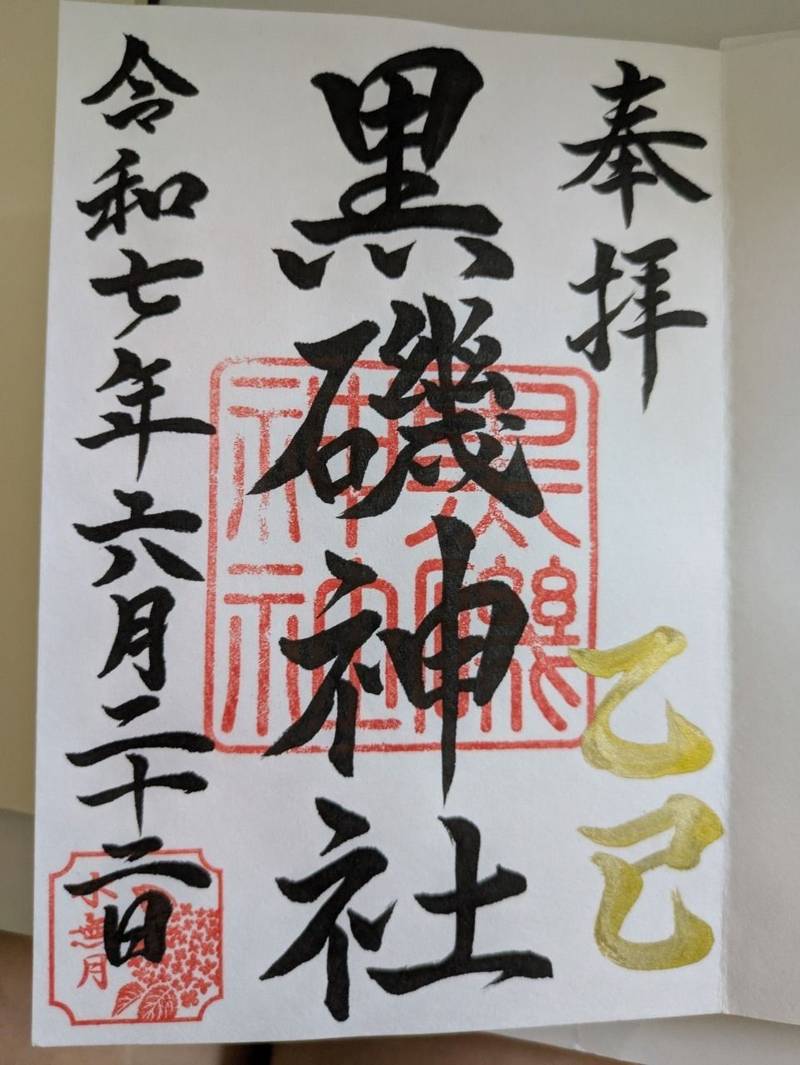 奉拝
乙巳
黒磯神社
令和七年六月二十二日
水無月